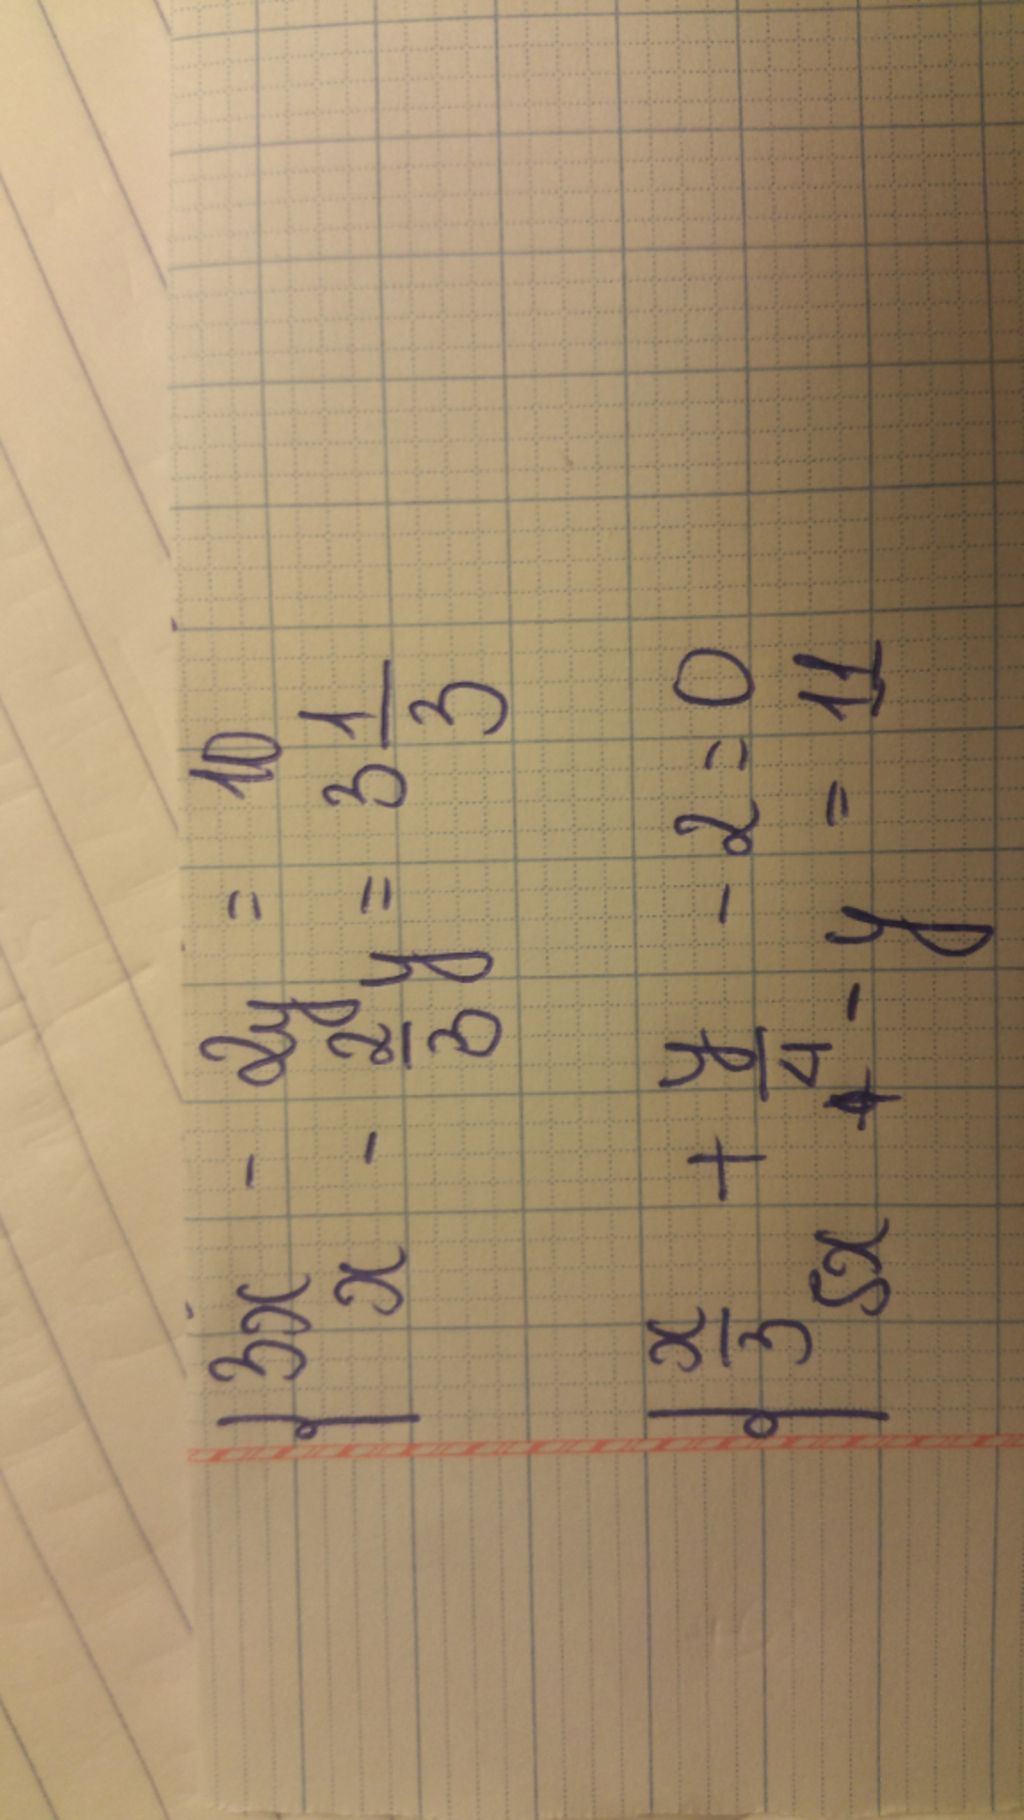 3x - 2y = 10
x - 2/3 y = 3 1/3
x/3 + y/4 - 2 = 0
5x - y = 11